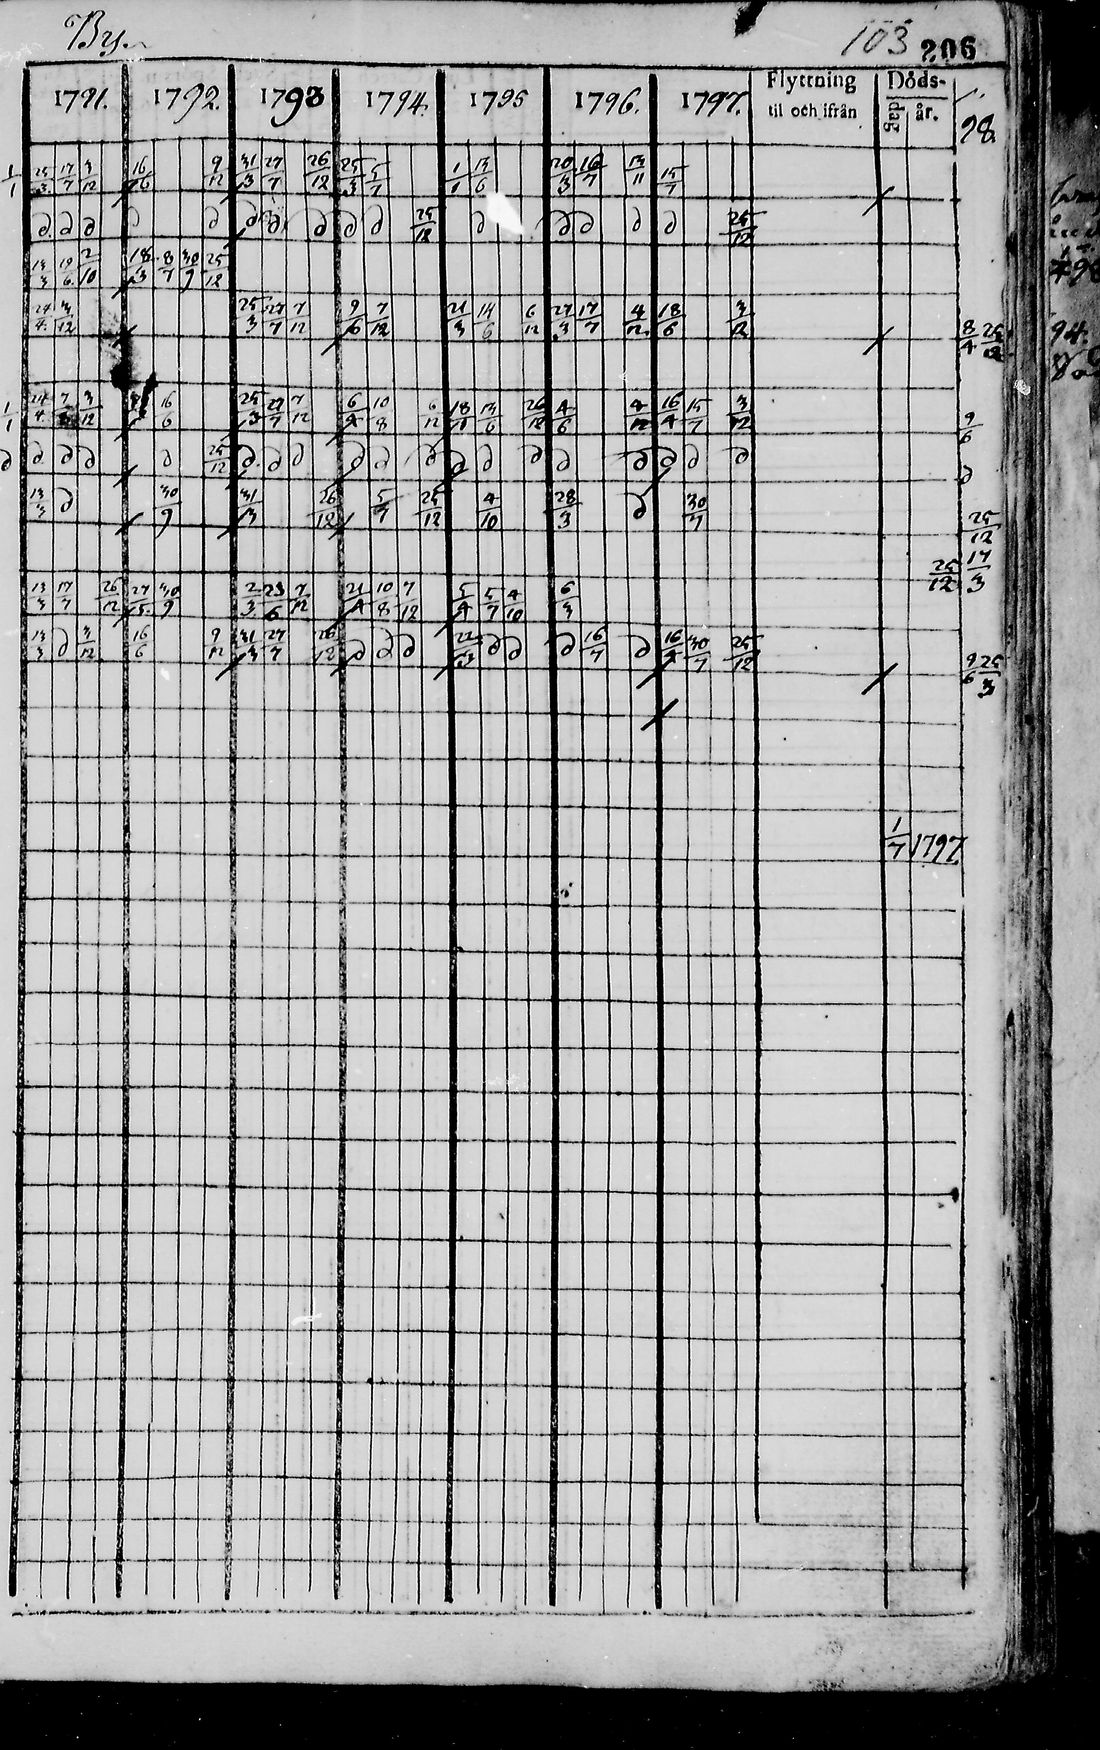 By. 103 206
1791. 1792. 1793 1794. 1795 1796. 1797. Flyttning til och ifrån Döds- dag år. 98.
1/1 25/3 17/7 3/12 16/6 9/12 31/3 27/7 26/12 25/3 5/7 1/1 13/6 20/3 16/7 13/11 15/7
d d d d d d d d d d 25/12 d d d d d 25/12
13/3 19/6 2/10 18/3 8/7 30/9 25/12
24/4 3/12 25/3 27/7 7/12 9/6 7/12 21/3 14/6 6/12 27/3 17/7 4/12 18/6 3/12 8/4 25/12
1/1 24/4 3/12 16/6 25/3 27/7 7/12 6/4 10/8 6/12 18/1 13/6 26/12 4/6 4/12 16/4 15/7 3/12 9/6
d d d d d 25/12 d d d d d d d d d d d d d d d
13/3 d 30/9 31/3 26/12 5/7 25/12 4/10 28/3 d 30/7 25/12
13/3 17/7 26/12 27/5 30/9 2/3 23/6 7/12 21/4 10/8 7/12 5/4 5/7 4/10 6/3 25/12 17/3
13/3 d 3/12 16/6 9/12 31/3 27/7 26/12 d d d 22/3 d d d 16/7 d 16/4 30/7 25/12 9/6 25/3
1/7 1797